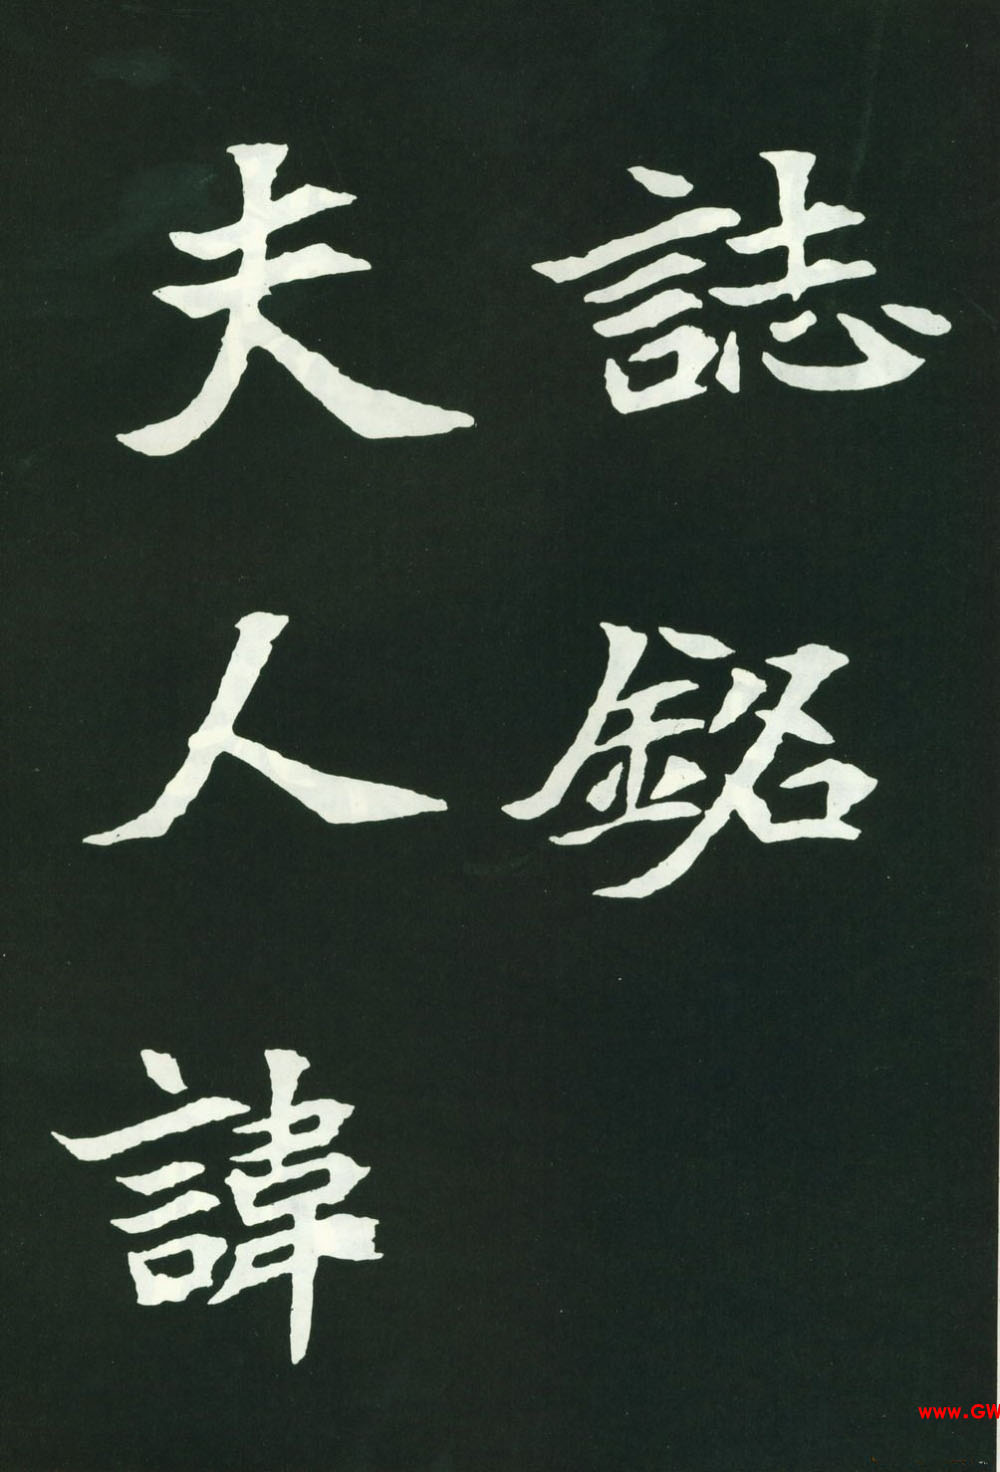 誌銘
夫人諱
www.GW